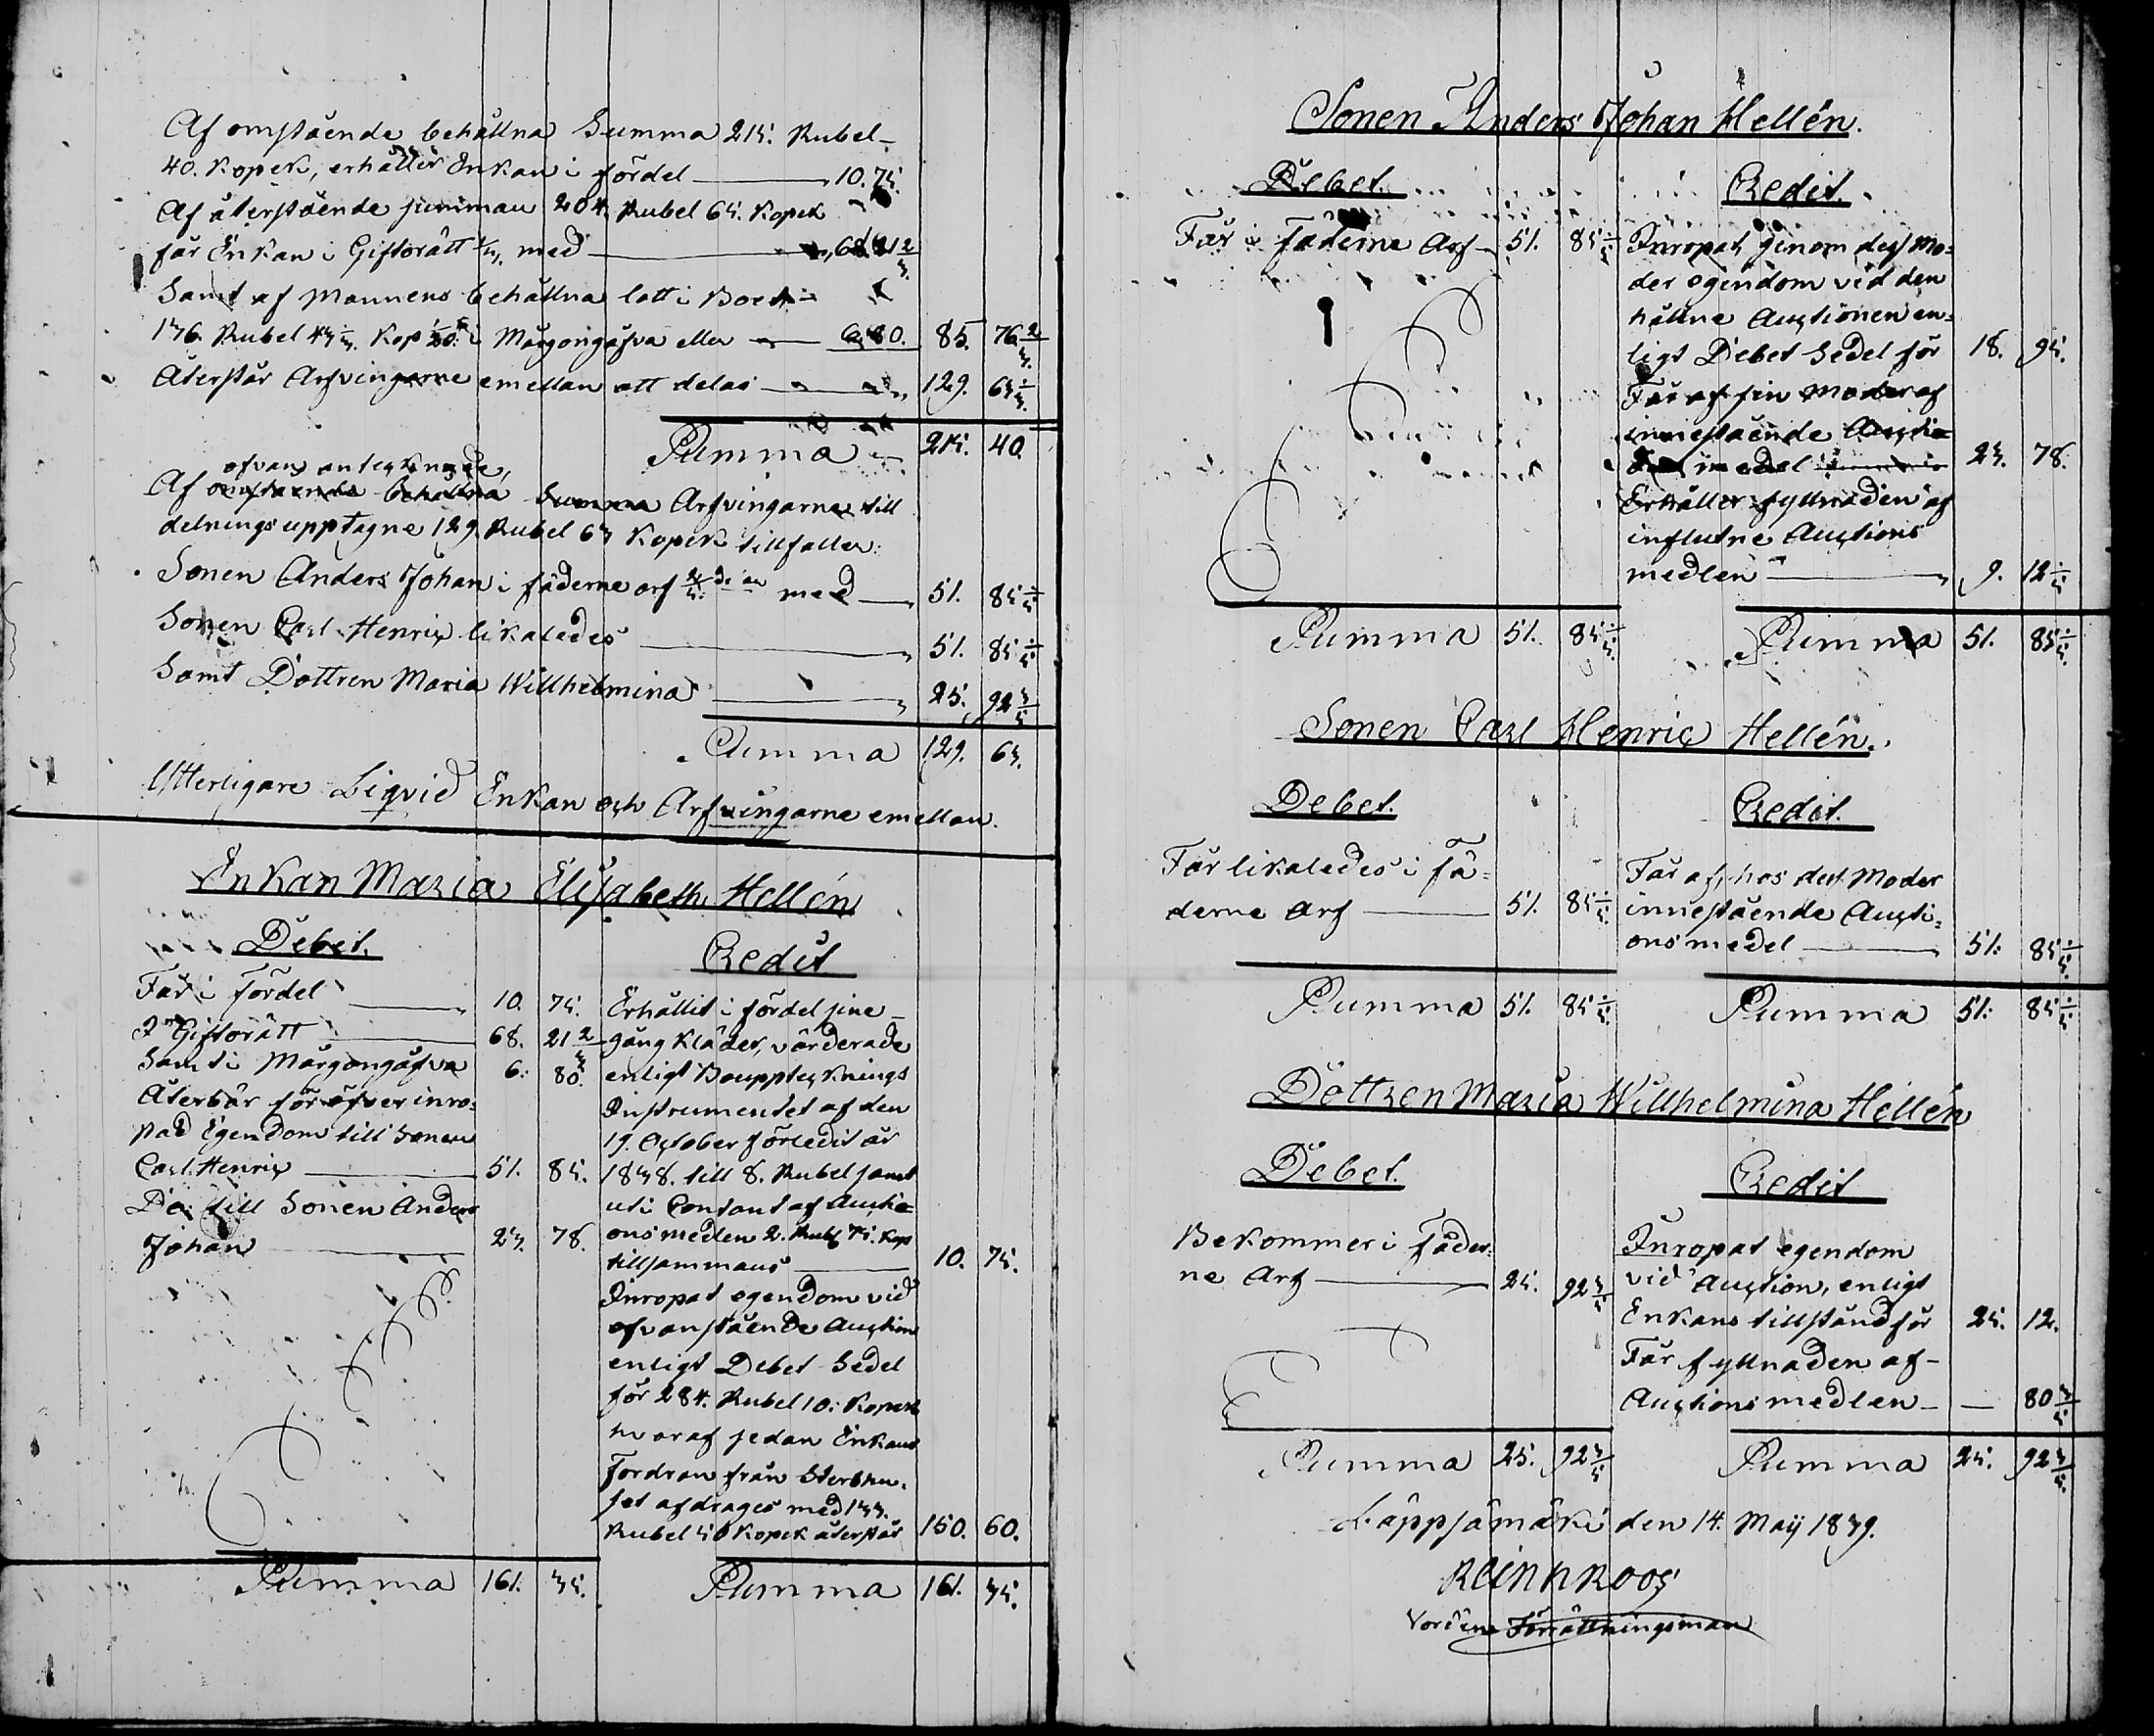 Af omstående behållna Summa 215. Rubel
40. Kopek, erhåller Enkan i fördel — 10.75.
Af återstående summan 204. Rubel 65. Kopek
får Enkan i Giftorätt 1/3. med — 68.21 2/3
Samt af Mannens behållna lott i Boet
136. Rubel 43 1/3. Kop 1/20 i Morgongåfva eller — 6.80. 85. 76 2/3.
Återstår Arfvingarne emellan att delas — 129. 63 1/3.
Summa — 215. 40.
ofvan anteknade,
Af omstående behållna Summa Arfvingarne till
delnings upptagne 129. Rubel 63 Kopek tillfaller:
Sonen Anders Johan i fäderne arf 2/5 de med — 51. 85 1/5
Sonen Carl Henric likaledes — 51. 85 1/5
Samt Dottren Maria Willhelmina — 25. 92 3/5
Summa 129. 63.
Ytterligare Liqvid Enkan och Arfvingarne emellan.
Enkan Maria Elisabeth Hellén
Debet.
Får i fördel — 10. 75.
I Giftorätt — 68. 21 2/3
Samt i Morgongåfva 6. 80.
Återbär för öfver inro-
pad Egendom till Sonen
Carl Henric — 51. 85.
Do till Sonen Anders
Johan — 23. 78.
Summa 161. 35.
Credit
Erhållit i fördel sine
gång kläder, värderade
enligt Bouppteknings
Instrumentet af den
19. October förledit år
1838. till 8. Rubel samt
uti Contant af Auctio-
onsmedlen 2. Rub 75. Kop
tillsammans — 10. 75.
Inropat egendom vid
ofvanstående Auction
enligt Debet Sedel
för 284. Rubel 10. Kopek
hvaraf sedan Enkans
Fordran från Sterbhu-
set afdrages med 133.
Rubel 50 Kopek återstår 150. 60.
Summa 161. 35.
Sonen Anders Johan Hellén.
Debet.
Får i fäderne Arf — 51. 85 1/5
Summa 51. 85 1/5.
Credit.
Inropat genom dess Mo-
der egendom vid den
hållne Auctionen en-
ligt Debet Sedel för 18. 95.
Får af sin Moder af
innestående Auctio-
medel 23. 78.
Erhåller fyllnaden af
influtne Auctions
medlen — 9. 12 1/5
Summa 51. 85 1/5.
Sonen Carl Henric Hellén.
Debet.
Får likaledes i fä-
derne Arf — 51. 85 1/5.
Summa 51. 85 1/5.
Credit.
Får af, hos dess Moder
innestående Aucti-
onsmedel — 51. 85 1/5.
Summa 51. 85 1/5
Dottren Maria Willhelmina Hellén
Debet.
Bekommer i fäder-
ne Arf — 25. 92 3/5
Summa 25. 92 3/5
Credit
Inropat egendom
vid Auction, enligt
Enkans tillstånd för 25. 12.
Får fyllnaden af
Auctionsmedlen — — 80 3/5
Summa 25. 92 3/5.
Läppjämäki den 14. Maij 1839.
Rein Kroos
Vorden Förrättningsman